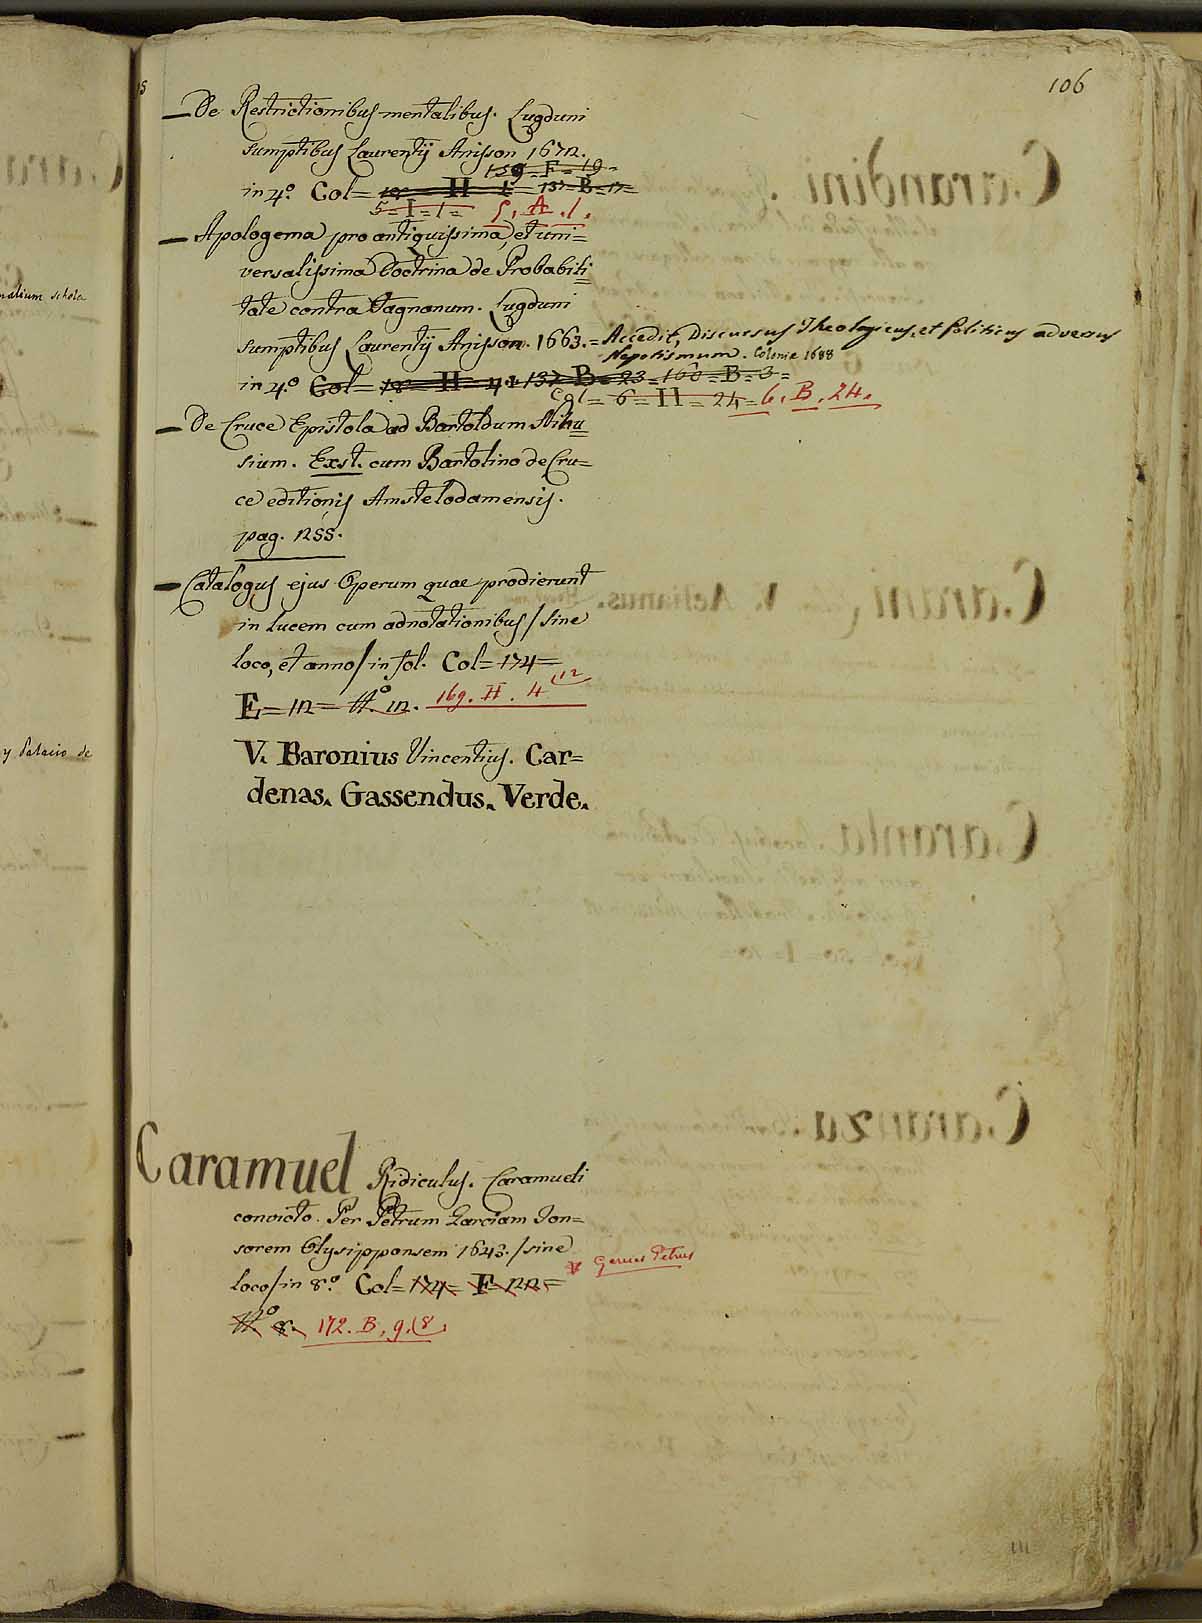 106
— De Restrictionibus mentalibus. Lugduni
sumptibus Laurentij Anisson 1672.
159=F=19=
in 4.º Col= H = 137=B=17=
5=I=1= 5. A. 1.
— Apologema pro antiquissima, et uni=
versalissima Doctrina de Probabili
tate contra Fagnanum. Lugduni
sumptibus Laurentij Anisson. 1663.= Accedit, Discursus Theologicus, et Politicus adversus
Nepotismum. Coloniæ 1688
in 4.º Col= 18= H= 4 137 B=23=160=B=3=
Col= 6=H=24= 6. B. 24.
— De Cruce Epistola ad Bartoldum Nihu
sium. Exst. cum Bartolino de Cru=
ce editionis Amstelodamensis.
pag. 255.
— Catalogus ejus Operum quae prodierunt
in lucem cum adnotationibus/ sine
loco, et anno/ in fol. Col= 174=
E=12= tt.º 12. 169. H. 4 (12
V. Baronius Vincentius. Car=
denas. Gassendus. Verde.
Caramuel Ridiculus. Caramueli
convicto. Per Petrum Garciam Ton=
sorem Olysipponsem 1643./ sine
loco/ in 8.º Col= 174= F=22= Petrus
tt.º 8. 172. B. 9. (8.
malium schola
y Palacio de